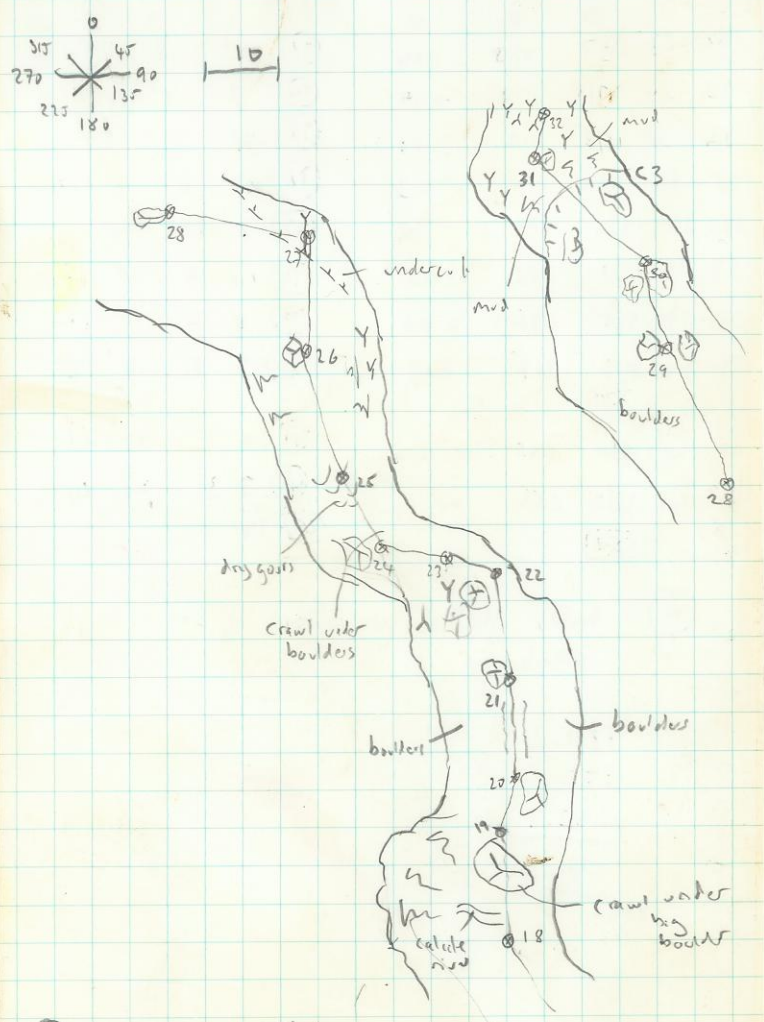 0
315
45
270
90
225
135
180
10
32
mud
31
C3
30
28
27
undercut
mud
26
29
boulders
25
28
dry gours
24
23
22
crawl under
boulders
21
boulders
boulders
20
19
crawl under
big
boulder
calcite
river
18